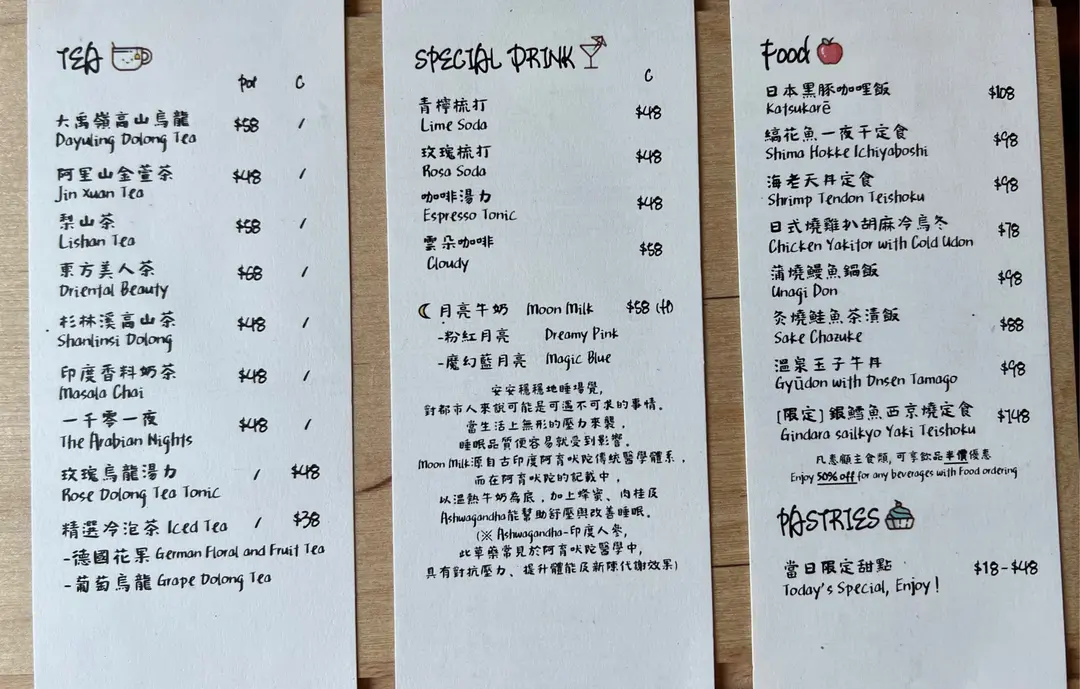 TEA
Pot C
大禹嶺高山烏龍 $58 /
Dayuling Oolong Tea
阿里山金萱茶 $48 /
Jin Xuan Tea
梨山茶 $58 /
Lishan Tea
東方美人茶 $68 /
Oriental Beauty
杉林溪高山茶 $48 /
Shanlinsi Oolong
印度香料奶茶 $48 /
Masala Chai
一千零一夜 $48 /
The Arabian Nights
玫瑰烏龍湯力 / $48
Rose Oolong Tea Tonic
精選冷泡茶 Iced Tea / $38
-德國花果 German Floral and Fruit Tea
-葡萄烏龍 Grape Oolong Tea
SPECIAL DRINK
C
青檸梳打 $48
Lime Soda
玫瑰梳打 $48
Rosa Soda
咖啡湯力 $48
Espresso Tonic
雲朵咖啡 $58
Cloudy
月亮牛奶 Moon Milk $58 (H)
-粉紅月亮 Dreamy Pink
-魔幻藍月亮 Magic Blue
安安穩穩地睡場覺，
對都市人來說可能是可遇不可求的事情。
當生活上無形的壓力來襲，
睡眠品質便容易就受到影響。
Moon Milk源自古印度阿育吠陀傳統醫學體系，
而在阿育吠陀的記載中，
以溫熱牛奶為底，加上蜂蜜、肉桂及
Ashwagandha能幫助舒壓與改善睡眠。
(※ Ashwagandha-印度人參，
此草藥常見於阿育吠陀醫學中，
具有對抗壓力、提升體能及新陳代謝效果)
Food
日本黑豚咖哩飯 $108
Katsukarē
縞花魚一夜干定食 $98
Shima Hokke Ichiyaboshi
海老天丼定食 $98
Shrimp Tendon Teishoku
日式燒雞扒胡麻冷烏冬 $78
Chicken Yakitor with Cold Udon
蒲燒鰻魚鍋飯 $98
Unagi Don
炙燒鮭魚茶漬飯 $88
Sake Chazuke
溫泉玉子牛丼 $98
Gyūdon with Onsen Tamago
[限定] 銀鱈魚西京燒定食 $148
Gindara sailkyo Yaki Teishoku
凡惠顧主食類, 可享飲品半價優惠
Enjoy 50% off for any beverages with Food ordering
PASTRIES
當日限定甜點 $18-$48
Today's Special, Enjoy !